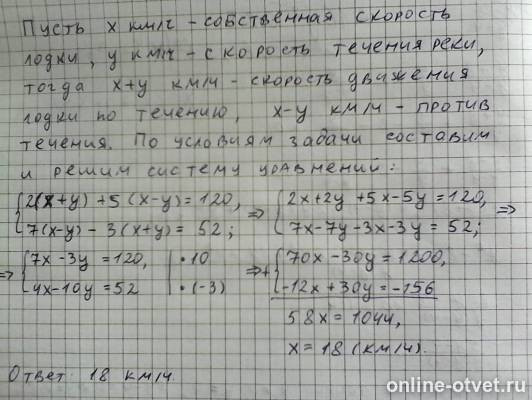 Пусть x км/ч - собственная скорость
лодки, y км/ч - скорость течения реки,
тогда x+y км/ч - скорость движения
лодки по течению, x-y км/ч - против
течения. По условиям задачи составим
и решим систему уравнений:
{2(x+y)+5(x-y)=120, => {2x+2y+5x-5y=120, =>
7(x-y)-3(x+y)=52; 7x-7y-3x-3y=52;
=> {7x-3y=120, |·10 =>+ {70x-30y=1200,
4x-10y=52 |·(-3) -12x+30y=-156
58x=1044,
x=18 (км/ч).
Ответ: 18 км/ч.
online-otvet.ru